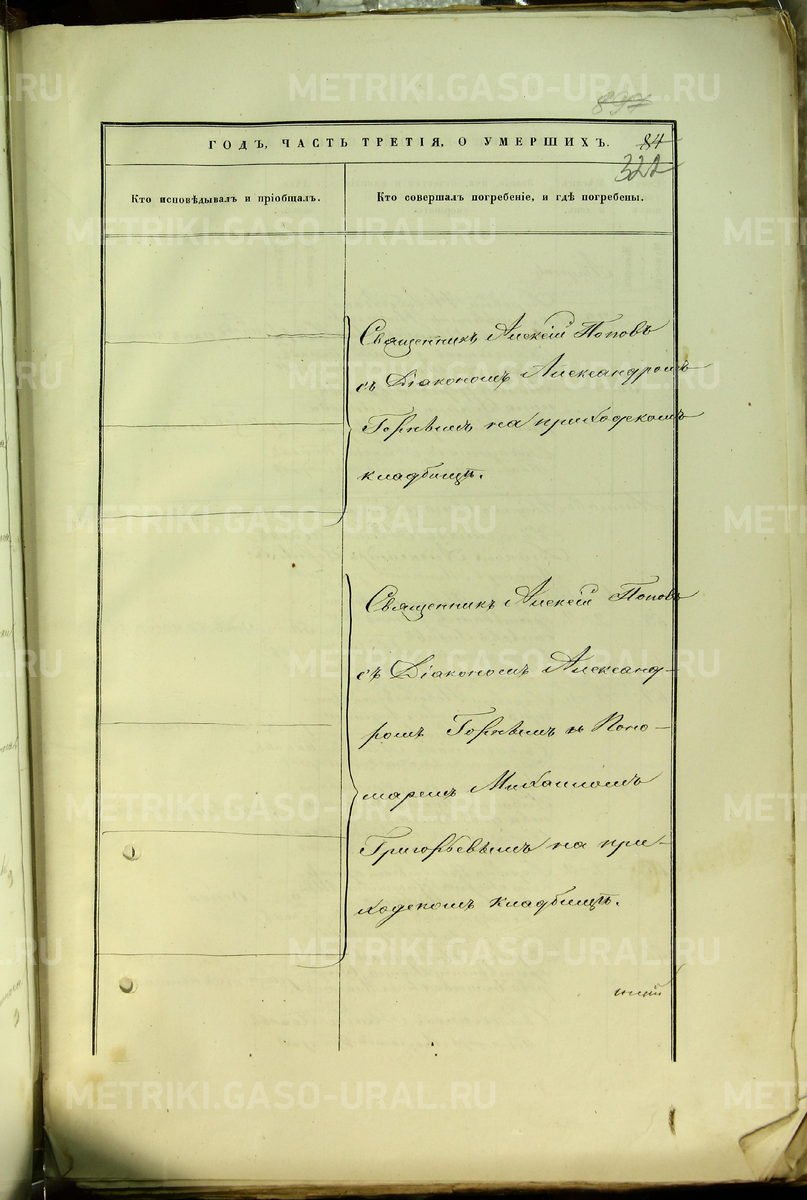 897
ГОДЪ, ЧАСТЬ ТРЕТІЯ, О УМЕРШИХЪ.
84
322
Кто исповѣдывалъ и пріобщалъ.
Кто совершалъ погребеніе, и гдѣ погребены.
Священникъ Алексій Поповъ
съ Діакономъ Александромъ
Горнымъ на приходскомъ
кладбищѣ.
Священникъ Алексій Поповъ
съ Діакономъ Александ-
ромъ Горнымъ и Поно-
маремъ Михаиломъ
Григорьевымъ на при-
ходскомъ кладбищѣ.
METRIKI.GASO-URAL.RU